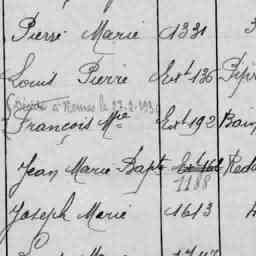 Pierre Marie 1331
Louis Pierre Ext 136
Décédé à Rennes le 27-2-193
François Mie Ext 192
Jean Marie Bapt Ext 162 Reda
1188
Joseph Marie 1613